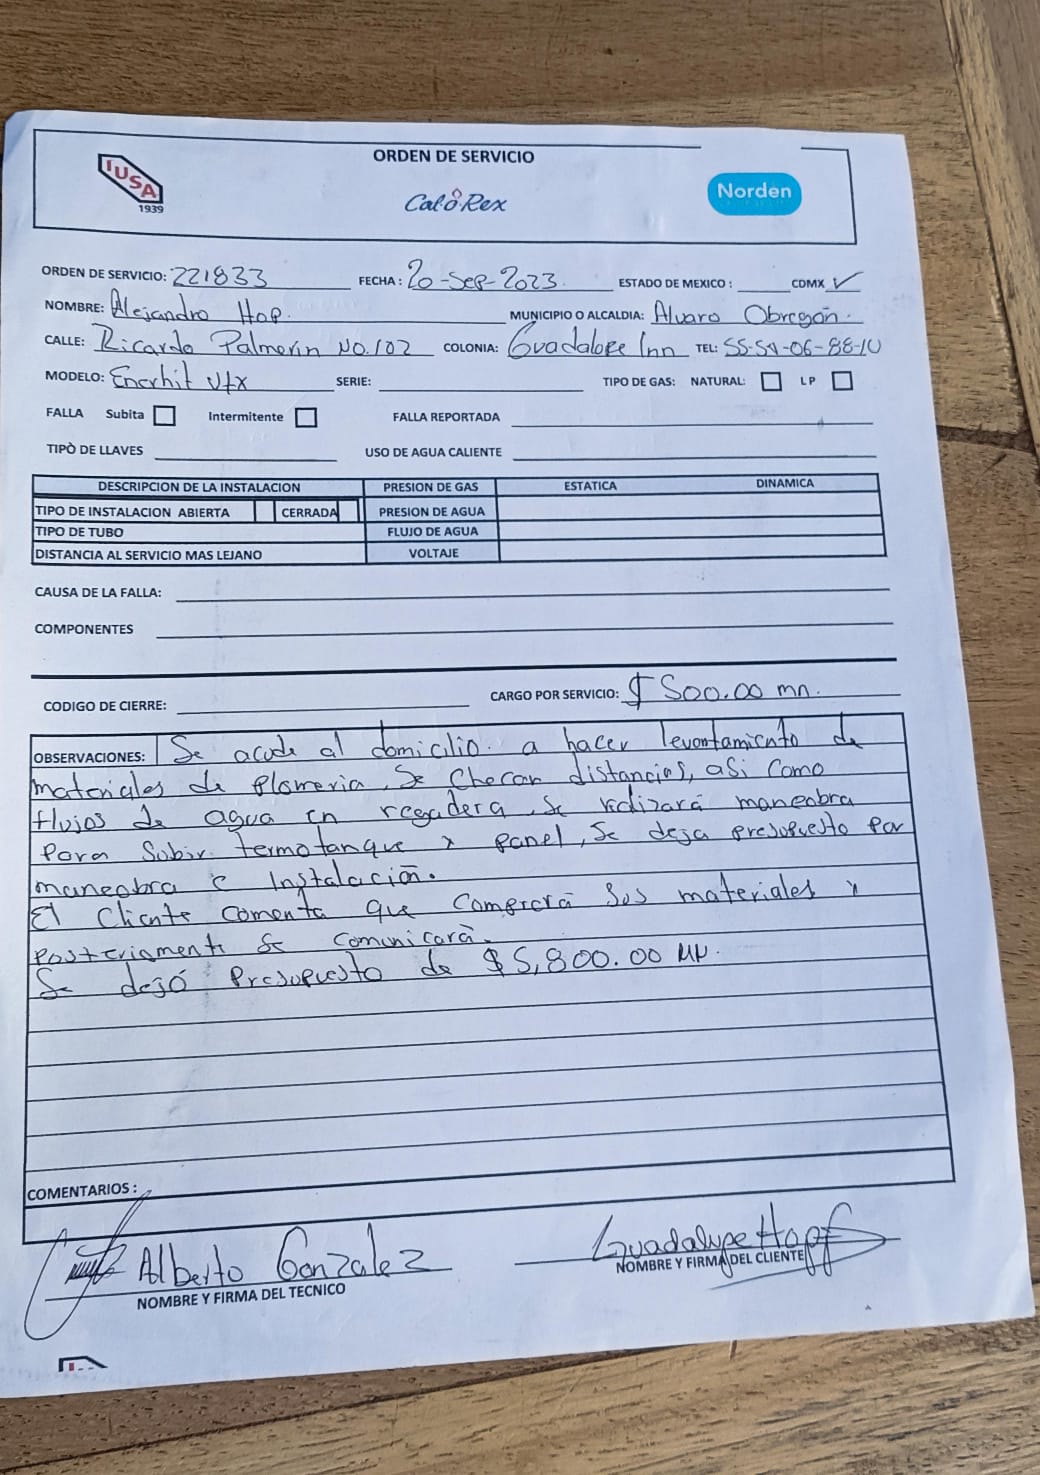 ORDEN DE SERVICIO
IUSA
1939
Calorex
Norden
ORDEN DE SERVICIO: 221833 FECHA: 20-Sep-2023 ESTADO DE MEXICO: CDMX ✓
NOMBRE: Alejandro Hop. MUNICIPIO O ALCALDIA: Alvaro Obregón.
CALLE: Ricardo Palmerín No. 102 COLONIA: Guadalupe Inn TEL: 55-54-06-88-10
MODELO: SERIE: TIPO DE GAS: NATURAL: LP
FALLA Subita Intermitente FALLA REPORTADA
TIPÒ DE LLAVES USO DE AGUA CALIENTE
DESCRIPCION DE LA INSTALACION PRESION DE GAS ESTATICA DINAMICA
TIPO DE INSTALACION ABIERTA CERRADA PRESION DE AGUA
TIPO DE TUBO FLUJO DE AGUA
DISTANCIA AL SERVICIO MAS LEJANO VOLTAJE
CAUSA DE LA FALLA:
COMPONENTES
CODIGO DE CIERRE: CARGO POR SERVICIO: $ 500.00 mn.
OBSERVACIONES: Se acude al domicilio. a hacer levantamiento de
materiales de plomeria, Se Checan distancias, asi Como
flujos de agua en regadera, se realizará maneobra
para Subir termotanque y panel, Se deja presupuesto por
maneobra e Instalación.
El Cliente comenta que Comprará Sus materiales y
posteriamente se comunicará.
Se dejó Presupuesto de $5,800.00 MN.
COMENTARIOS:
Alberto Gonzalez
NOMBRE Y FIRMA DEL TECNICO
Guadalupe Hopf
NOMBRE Y FIRMA DEL CLIENTE